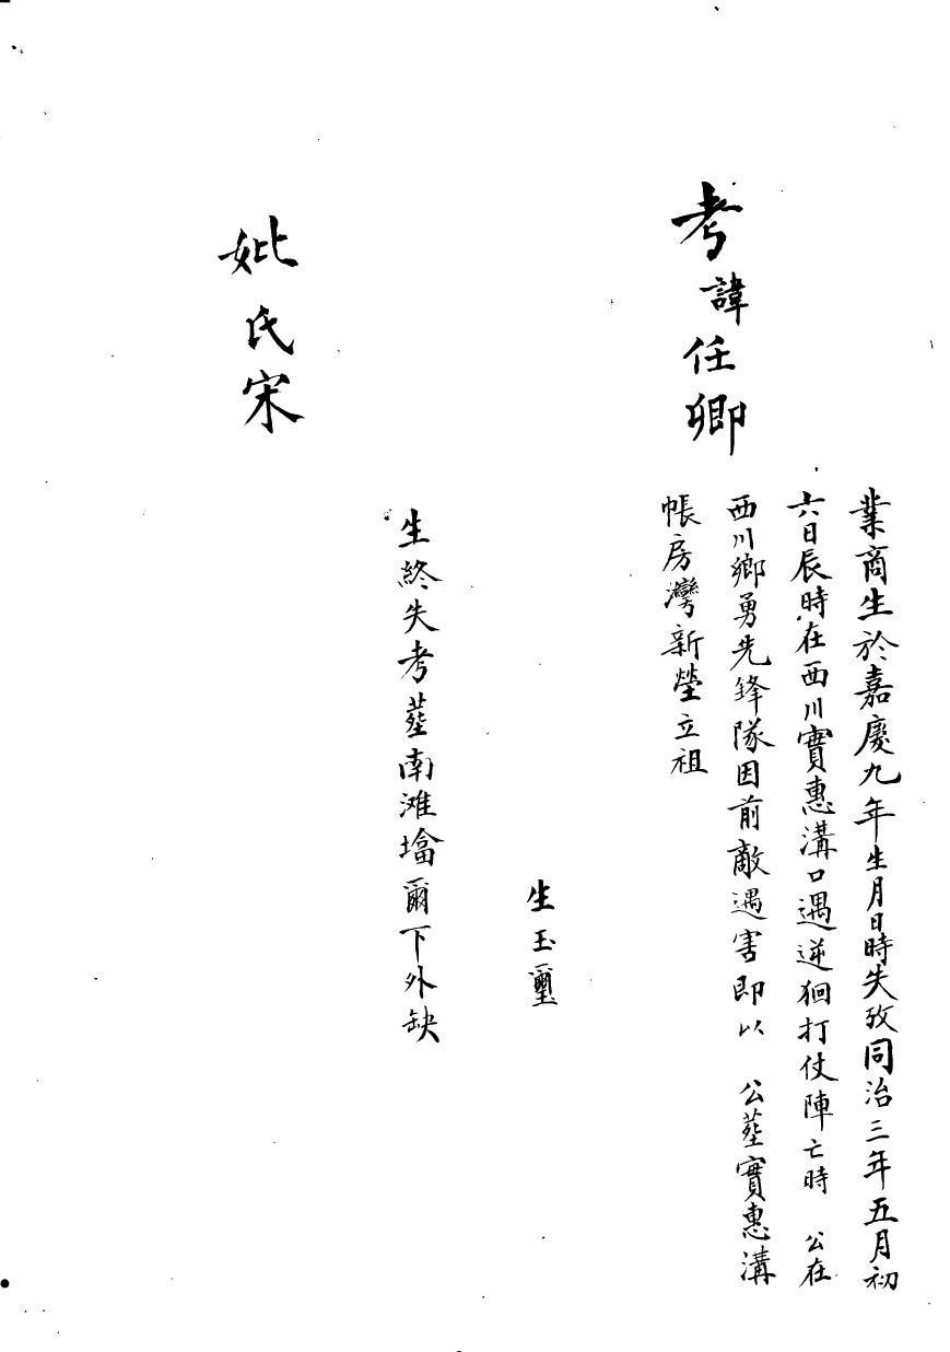 考諱任卿
業商生於嘉慶九年生月日時失攷同治三年五月初
六日辰時在西川實惠溝口遇逆狪打仗陣亡時 公在
西川鄉勇先鋒隊因前敵遇害即以 公塟實惠溝
帳房灣新塋立祖
生玉璽
妣氏宋
生終失考塟南滩墖爾下外缺